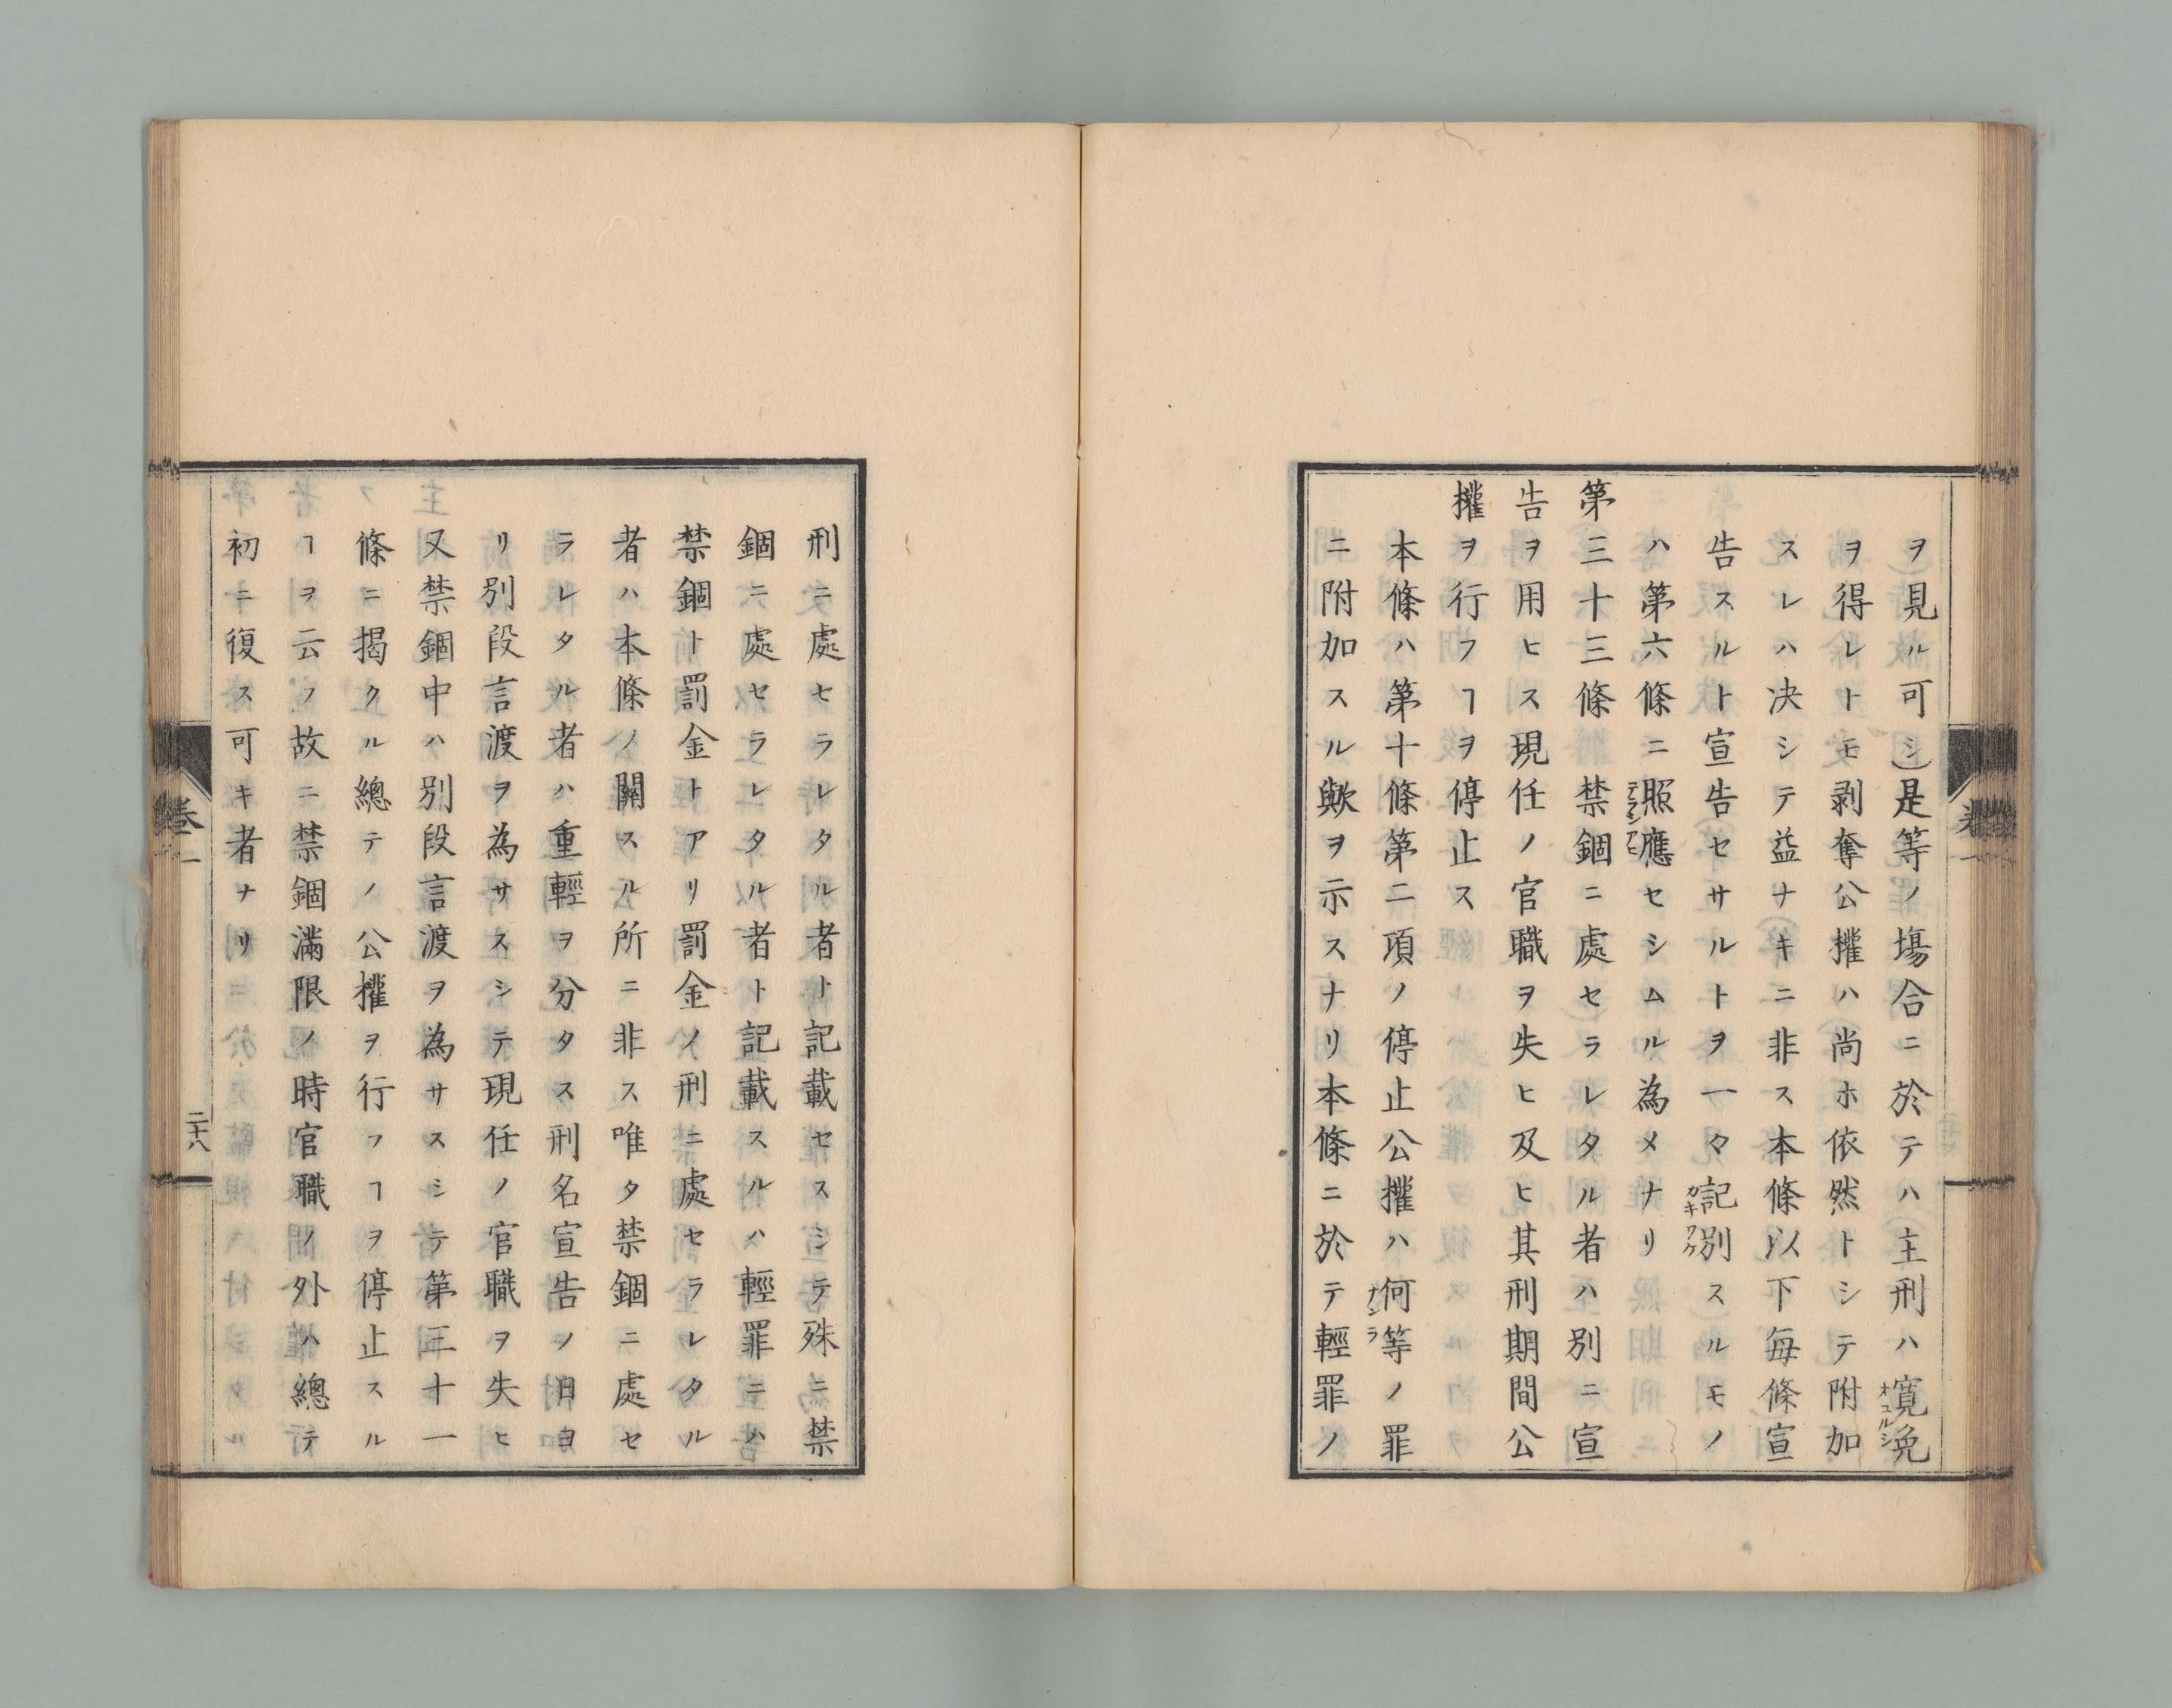 ヲ見ル可シ)是等ノ塲合ニ於テハ主刑ハ寛免
オユルシ
ヲ得レトモ剥奪公權ハ尚ホ依然トシテ附加
スレハ决シテ益ナキニ非ス本條以下每條宣
告スルト宣告セサルトヲ一々記別スルモノ
カキワケ
ハ第六條ニ照應セシムル為メナリ
テラシアヒ
第三十三條禁錮ニ處セラレタル者ハ別ニ宣
告ヲ用ヒス現任ノ官職ヲ失ヒ及ヒ其刑期間公
權ヲ行フヿヲ停止ス
本條ハ第十條第二項ノ停止公權ハ何等ノ罪
ナンラ
ニ附加スル歟ヲ示スナリ本條ニ於テ輕罪ノ
卷一
刑ニ處セラレタル者ト記載セスシテ殊ニ禁
錮ニ處セラレタル者ト記載スルハ輕罪ニハ
禁錮ト罰金トアリ罰金ノ刑ニ處セラレタル
者ハ本條ノ關スル所ニ非ス唯タ禁錮ニ處セ
ラレタル者ハ重輕ヲ分タス刑名宣告ノ日ヨ
リ別段言渡ヲ為サスシテ現任ノ官職ヲ失ヒ
又禁錮中ハ別段言渡ヲ為サスシテ第三十一
條ニ揭クル總テノ公權ヲ行フヿヲ停止スル
ヿヲ云フ故ニ禁錮滿限ノ時官職ノ外ハ總テ
初ニ復ス可キ者ナリ
卷一
二十八